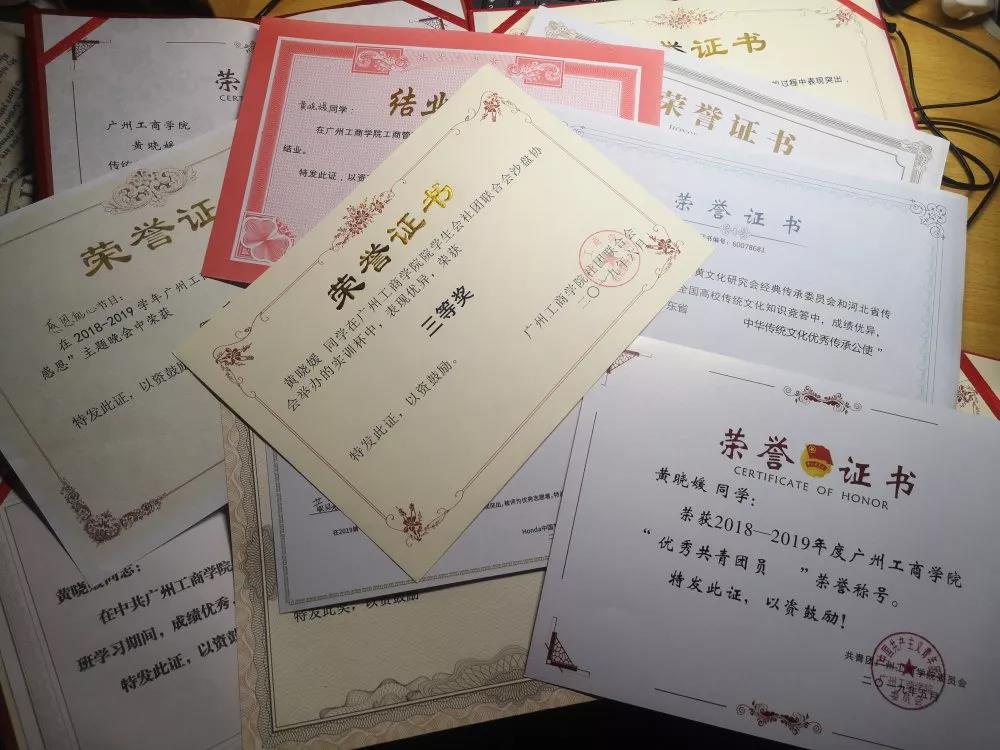 荣
CERT
广州工商学院
黄晓媛
传统
结业
黄晓媛同学：
在广州工商学院工商管
结业。
特发此证，以资
誉证书
过程中表现突出，
荣誉证书
荣誉证书
证书编号：60078681
黄文化研究会经典传承委员会和河北省传
全国高校传统文化知识竞答中，成绩优异，
东省
中华传统文化优秀传承公使”
荣誉证
感恩励心节目：
在2018-2019学年广州工
感恩”主题晚会中荣获
特发此证，以资鼓励
荣誉证书
黄晓媛 同学在广州工商学院院学生会社团联合会沙盘协
会举办的实训杯中，表现优异，荣获
三等奖
特发此证，以资鼓励。
广州工商学院社团联合会
二〇一九年六月
荣誉证书
CERTIFICATE OF HONOR
黄晓媛 同学：
荣获2018—2019年度广州工商学院
“优秀共青团员 ”荣誉称号。
特发此证，以资鼓励！
共青团广州工商学院委员会
突出，被评为优秀志愿者，特
在2019
Honda中国
特发此奖，以资鼓励
黄晓媛同志：
在中共广州工商学院
班学习期间，成绩优秀，
特发此证，以资鼓